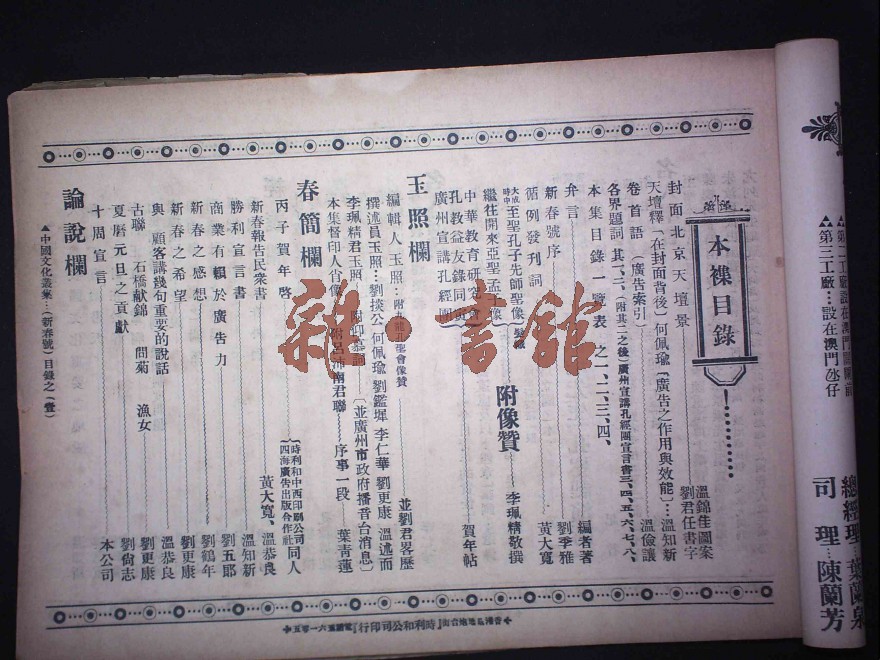 本襍目錄
封面北京天壇景
溫錦隹圖案
劉君任書字
天壇釋「在封面背後」何佩瑜「廣告之作用與效能」溫知新
卷首語（廣告索引）
溫儉讓
各界題詞 其一、二、（附其二之後）廣州宣講孔經團宣言書三、四、五、六、七、八、
本集目錄一覽表 之一、二、三、四、
編者著
弁言
劉季雅
新春號序
黃大寬
循例發刊詞
大成時中至聖孔子先師聖像
附像贊
李珮精敬撰
繼往開來亞聖孟子像
中華教育研究會
孔教益友錄同頁
賀年帖
廣州宣講孔經團
玉照欄
編輯人玉照
並劉君畧歷
撰述員玉照 劉掞公 何佩瑜 劉鑑墀 李仁華 劉更康 溫述而
李珮精君玉照
（並廣州市政府播音台消息）
本集督印人肖像
附呂沛南君聯
序事一段
葉青蓮
春簡欄
丙子賀年啓
時利和中西印刷公司
四海廣告出版合作社
同人
新春報告民衆書
黃大寬、溫恭良
勝利宣言書
溫知新
商業有賴於廣告力
劉五郎
新春之感想
劉鶴年
新春之希望
劉更康
與顧客講幾句重要的說話
溫恭良
古聯 石橋献錦 問菊 漁女
劉更康
夏曆元旦之貢獻
劉尙志
十周宣言
本公司
論說欄
▲中國文化叢集…（新春號）目錄之（壹）
時利和公司印行
▲第二工廠
▲第三工廠…設在澳門氹仔
總經理 葉蘭泉
司理 陳蘭芳
雜·書館